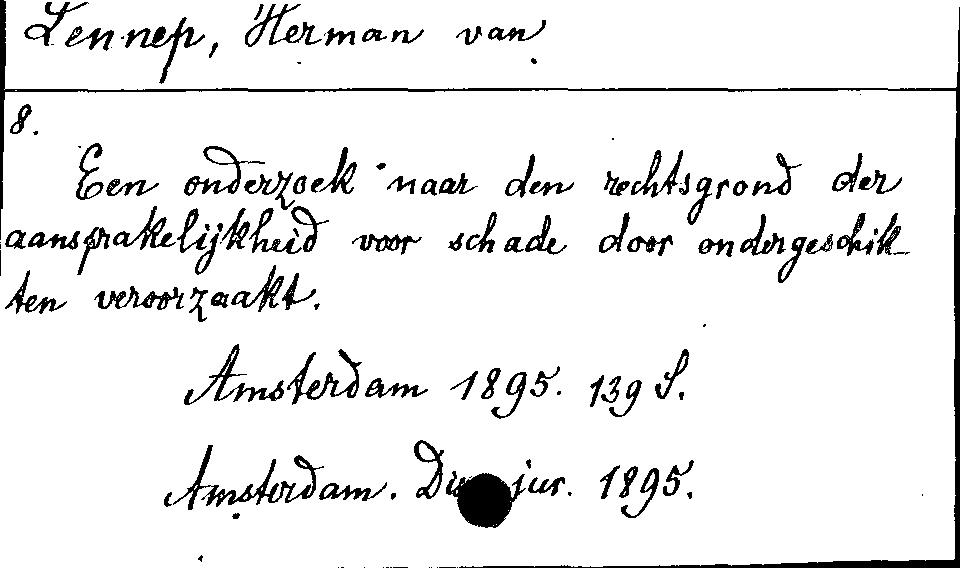 Lennep, Herman van
8.
Een onderzoek naar den rechtsgrond der
aansprakelijkheid voor schade door ondergeschik-
ten veroorzaakt.
Amsterdam 1895. 139 S.
Amsterdam. jur. 1895.